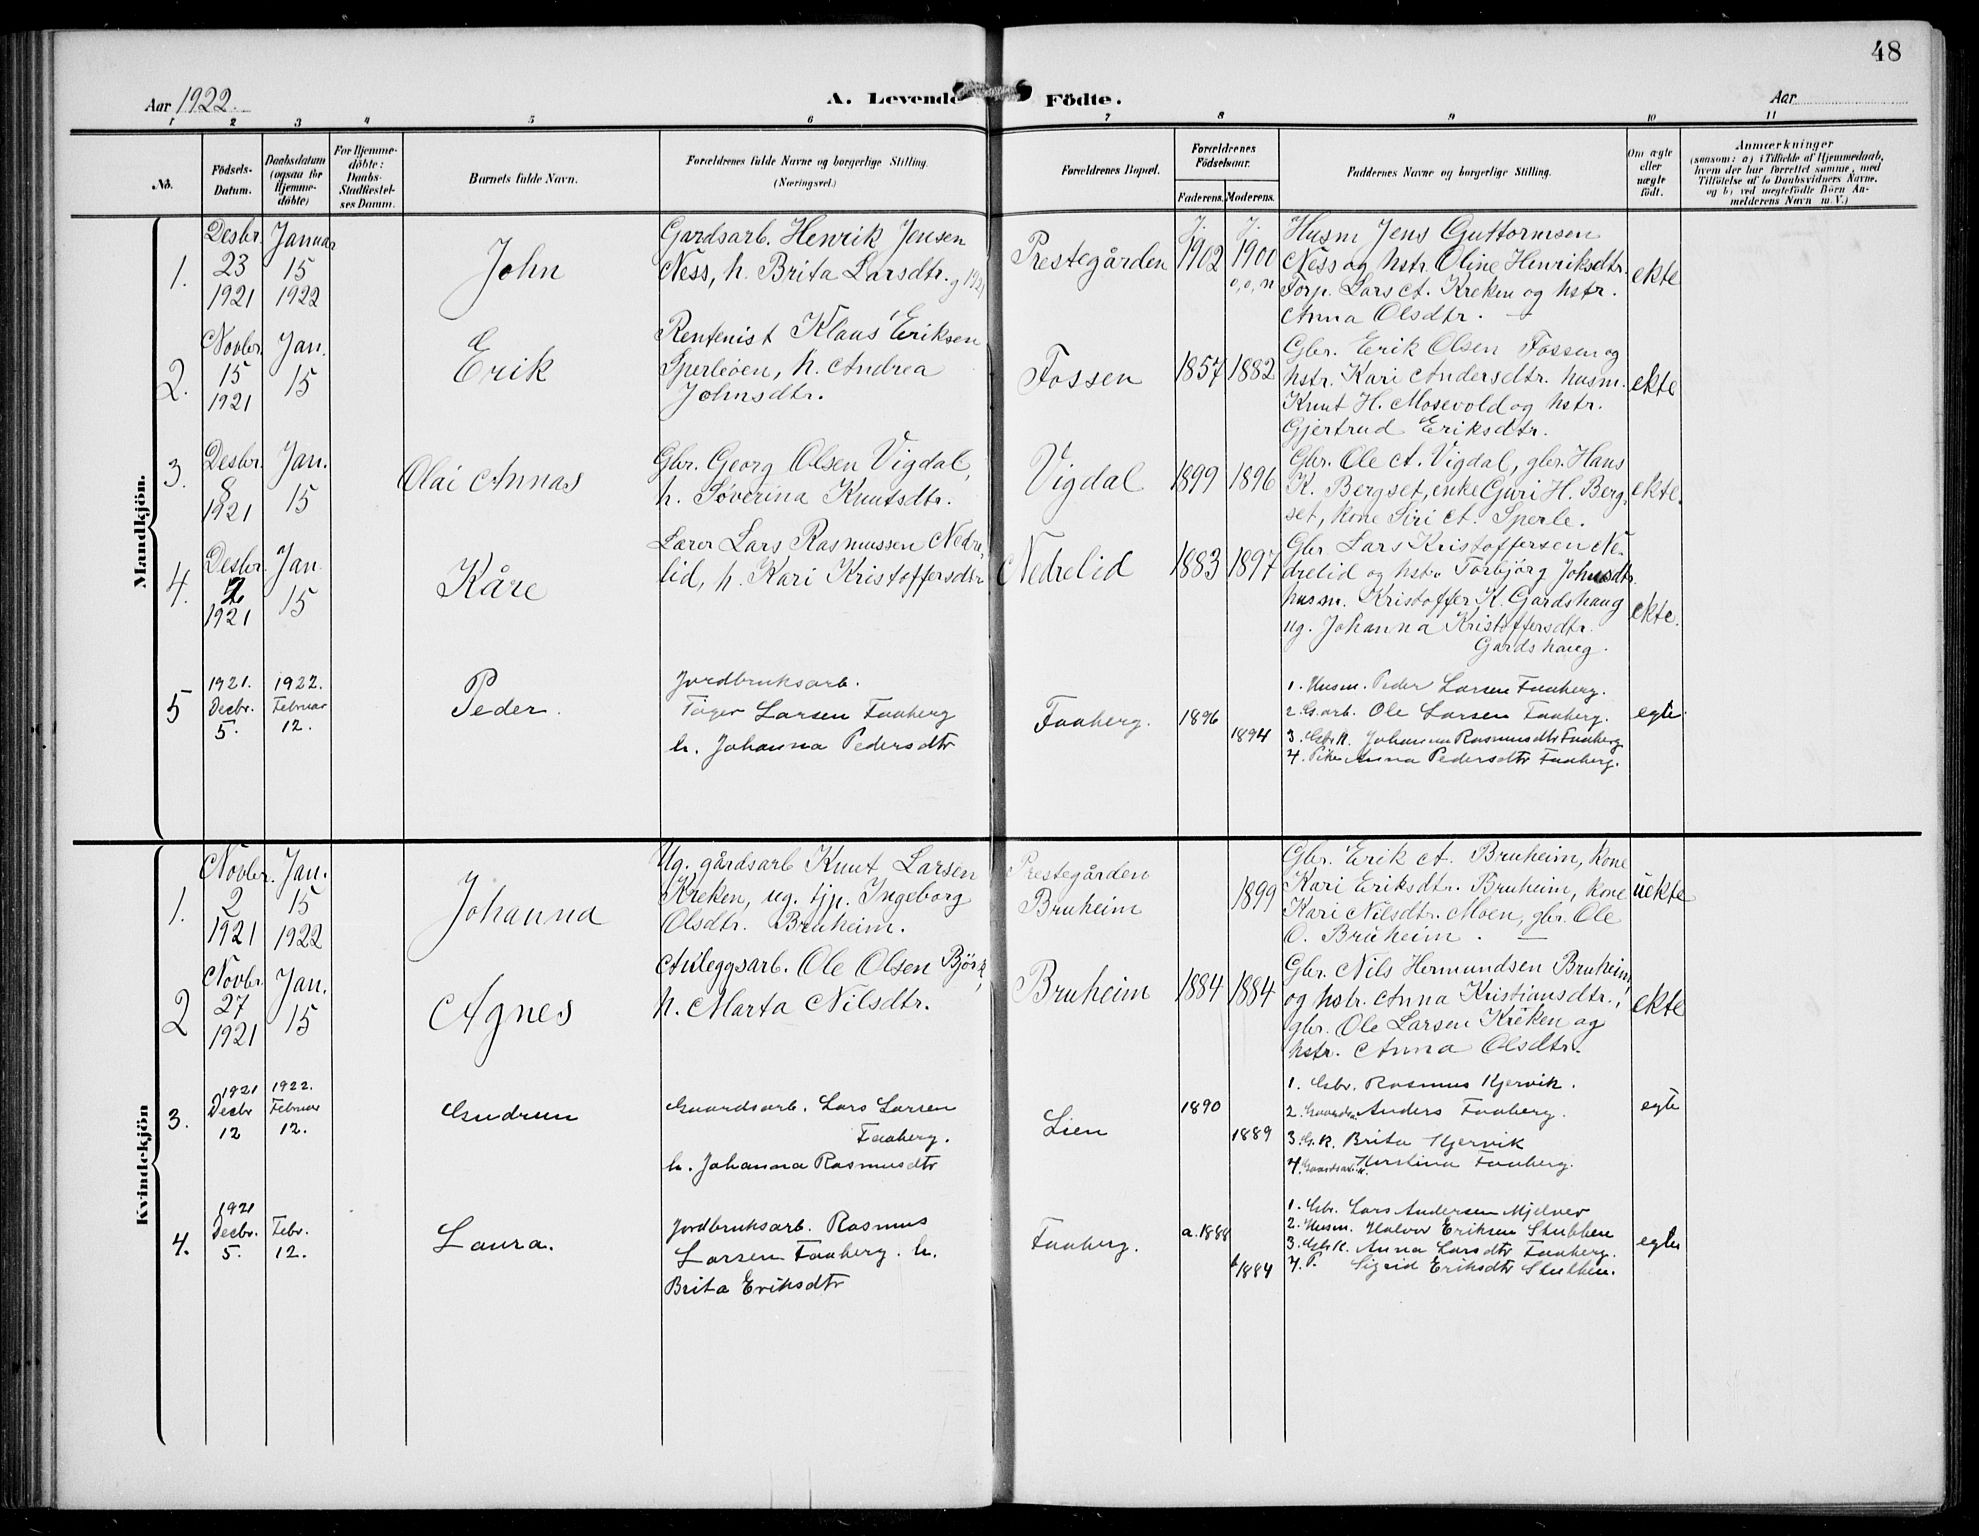 48
Aar 1922.
A. Levende Födte.
Aar
1 2 3 4 5 6 7 8 9 10 11
No.
Födsels-Datum.
Daabsdatum (ogsaa for Hjemme-döbte)
For Hjemme-döbte: Daabs-Stadfæstel-ses Datum.
Barnets fulde Navn.
Forældrenes fulde Navne og borgerlige Stilling. (Næringsvei.)
Forældrenes Bopæl.
Forældrenes Födselsaar.
Faderens. Moderens.
Faddernes Navne og borgerlige Stilling.
Om ægte eller uægte födt.
Anmærkninger
(saasom: a) i Tilfælde af Hjemmedaab, hvem der har forrettet samme, med Tilföielse af to Daabsvidners Navne, og b) ved uægtefödte Börn An-melderens Navn m. V.)
Mandkjön.
1. Desbr. 23 1921
Januar 15 1922
John
Gardsarb. Henrik Jensen
Ness, h. Brita Larsdtr. g 1921
Prestegården
1902 1900
Husm Jens Guttormsen
Ness og hstr. Oline Henriksdtr.
Forp. Lars A. Kreken og hstr.
Anna Olsdtr.
ekte
2. Novbr. 15 1921
Jan. 15
Erik
Rentenist Klaus Eriksen
Sperleöen, h. Andrea
Johnsdtr.
Fossen
1857 1882
Gbr. Erik Olsen Fossen og
hstr. Kari Andersdtr. husm.
Knut H. Mosevold og hstr.
Gjertrud Eriksdtr.
ekte
3. Desbr. 8 1921
Jan. 15
Olai Annas
Gbr. Georg Olsen Vigdal,
h. Söverina Knutsdtr.
Vigdal
1899 1896
Gbr. Ole A. Vigdal, gbr. Hans
K. Bergset, enke Guri H. Berg-
set, kone Siri A. Sperle.
ekte.
4. Desbr. 1921
Jan 15
Kåre
Lærer Lars Rasmussen Nedre-
lid, h. Kari Kristoffersdtr
Nedrelid
1883 1897
Gbr. Lars Kristoffersen Ne-
drelid og hstr. Torbjörg Johnsdtr.
husm. Kristoffer K. Gardshaug
ug. Johanna Kristoffersdtr.
Gardshaug.
ekte.
5 1921. Desbr. 5.
1922. Februar 12.
Peder.
Jordbruksarb.
Töger Larsen Faaberg
h. Johanna Pedersdtr
Faaberg.
1896 1894
1. Husm. Peder Larsen Faaberg.
2. G.arb. Ole Larsen Faaberg.
3. Gbr.k. Johanna Rasmusdtr Faaberg
4. Pike Anna Pedersdtr Faaberg.
egte
Kvindekjön
1. Novbr. 2 1921
Jan. 15 1922
Johanna
Ug. gårdsarb Knut Larsen
Kreken, ug. tjp. Ingeborg
Olsdtr. Bruheim.
Prestegården
Bruheim
1899
Gbr. Erik A. Bruheim, kone
Kari Eriksdtr. Bruheim, kone
Kari Nilsdtr. Moen, gbr. Ole
O. Bruheim.
uekte
2 Novbr. 27 1921
Jan. 15
Agnes
Anleggsarb. Ole Olsen Björk,
h. Marta Nilsdtr.
Bruheim
1884 1884
Gbr. Nils Hermundsen Bruheim,
og hstr. Anna Kristiansdtr.,
gbr. Ole Larsen Kreken og
hstr. Anna Olsdtr.
ekte
3. 1921 Desbr 12
1922. Februar 12.
Gudrun
Gaardsarb. Lars Larsen
Faaberg.
h. Johanna Rasmusdtr
Lien
1890 1889
1. Gbr. Rasmus Hjervik.
2. Gaardsa. Anders Faaberg.
3. G.k. Brita Hjervik
4. Gaardsarb.k. Kirstina Faaberg.
egte
4. 1921 Desbr. 5.
Febr. 12.
Laura.
Jordbruksarb. Rasmus
Larsen Faaberg. h.
Brita Eriksdtr
Faaberg.
a. 1888 b 1884
1. Gbr. Lars Andersen Mjelver
2. Husm. Halvor Eriksen Stubben
3. Gbr.k. Anna Larsdtr Faaberg.
4. P. Sigrid Eriksdtr Stubben.
egte